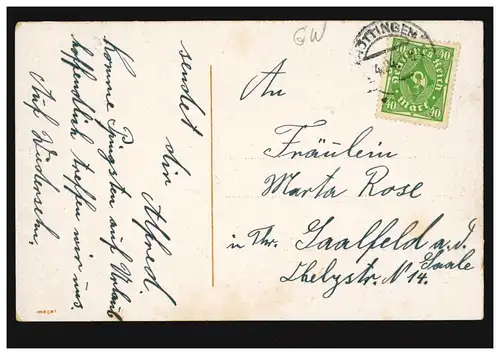 GW
GÖTTINGEN
40 40
Deutsches Reich
Mark
40 40
An
Fräulein
Marta Rose
in Thr. Saalfeld a. d.
Saale
N 14.
sendet dir Alfred.
Komme Pfingsten auf Urlaub
hoffendlich treffen wir uns.
Auf Wiedersehn.